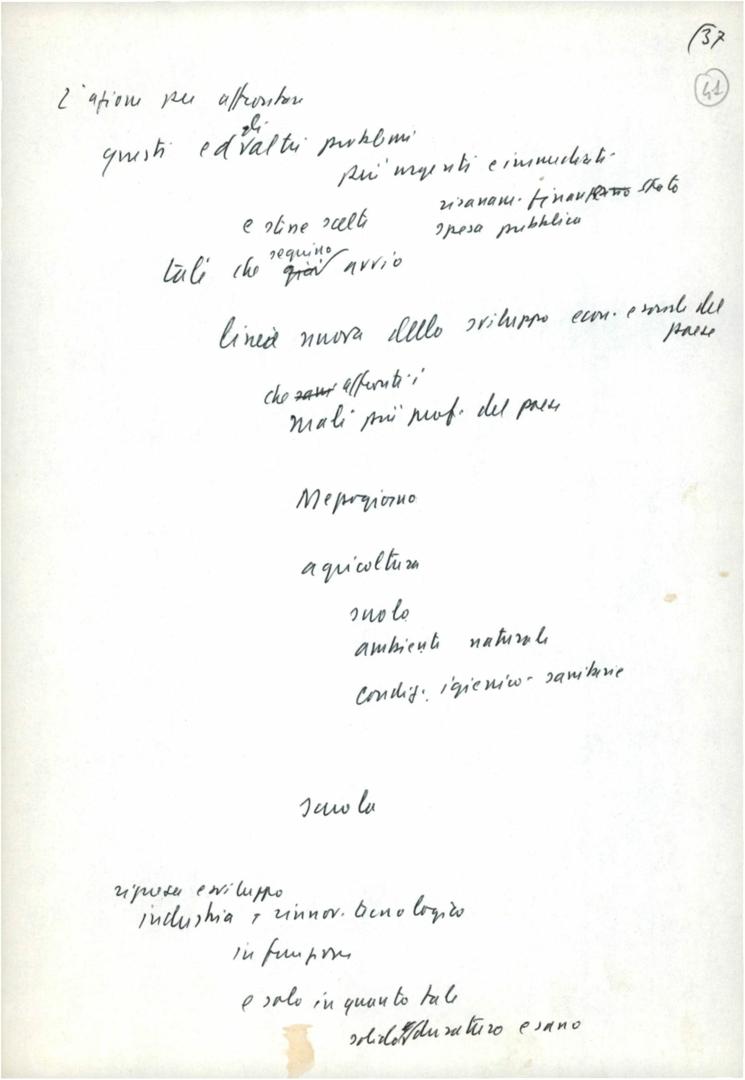 (37
41
L'azione per affrontare
gli
questi ed altri problemi
più urgenti e immediati
risanam. finanz. stato
e otine scelte spesa pubblica
seguino
tali che già avvio
linea nuova dello sviluppo econ. e sociale del
paese
che affronti i
mali più prof. del paese
Mezzogiorno
agricoltura
suolo
ambiente naturale
Condiz. igienico-sanitarie
scuola
ripresa e sviluppo
industria e rinnov. tecnologico
in funzione
e solo in quanto tale
solido e duraturo e sano